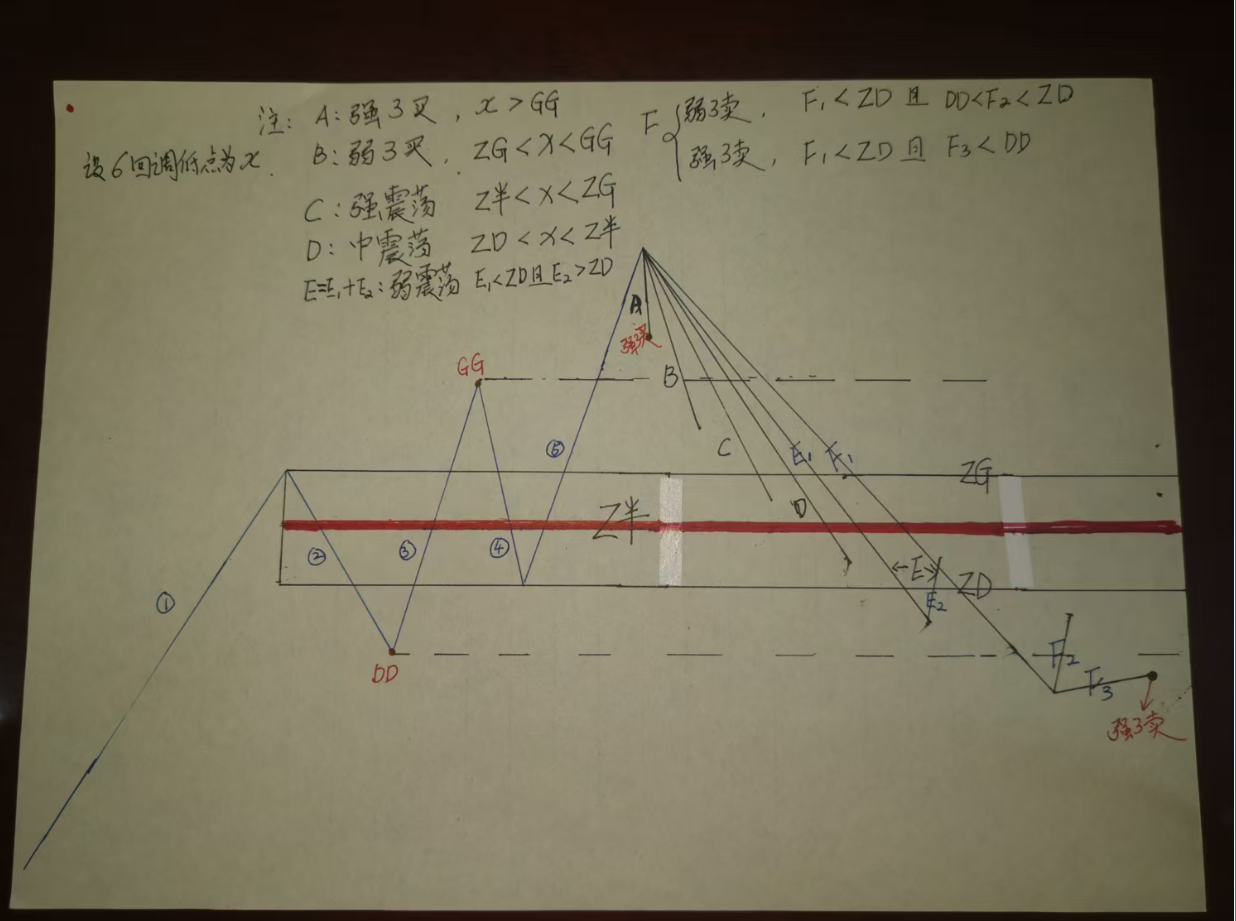 注: A:强3买, x>GG
设6回调低点为x.
B:弱3买, ZG<x<GG
C:强震荡 Z半<x<ZG
D:中震荡 ZD<x<Z半
E=E₁+E₂:弱震荡 E₁<ZD且E₂>ZD
F{弱3卖, F₁<ZD且 DD<F₂<ZD
强3卖, F₁<ZD且 F₃<DD
A
强3买
GG
B
⑤
C
E₁
F₁
ZG
D
Z半
②
③
④
←E→
ZD
E₂
①
DD
F₂
F₃
强3卖